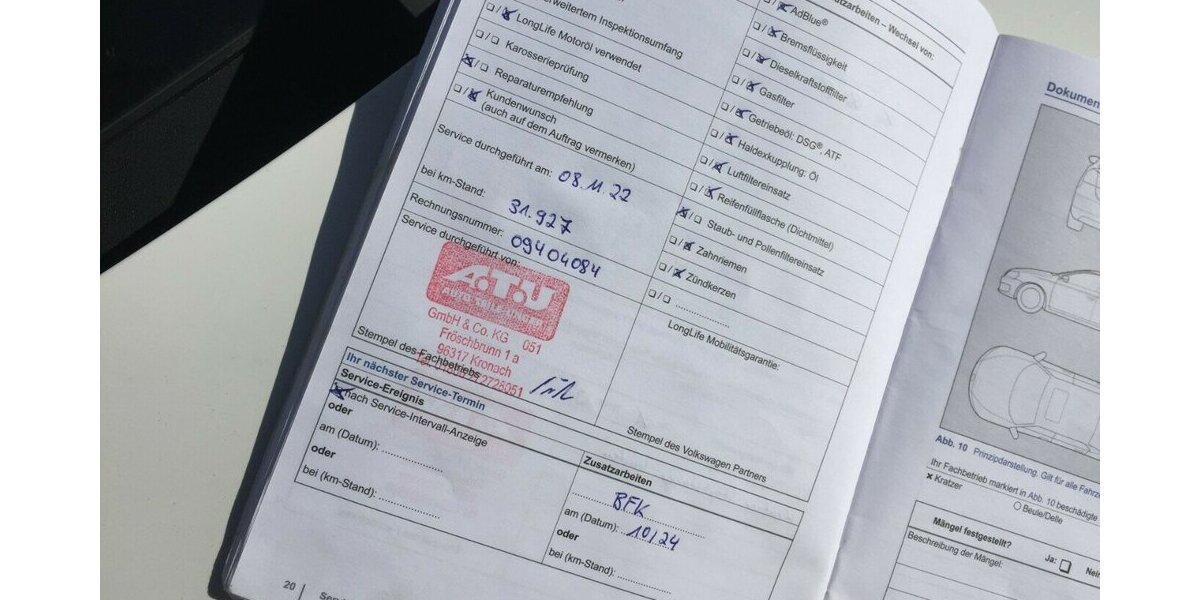 erweitertem Inspektionsumfang
LongLife Motoröl verwendet
Karosserieprüfung
Reparaturempfehlung
Kundenwunsch
(auch auf dem Auftrag vermerken)
Service durchgeführt am: 08.11.22
bei km-Stand: 31.927
Rechnungsnummer: 09404084
Service durchgeführt von:
A.T.U
GmbH & Co. KG 051
Fröschbrunn 1 a
96317 Kronach
2728051
Stempel des Fachbetriebs
Ihr nächster Service-Termin
Service-Ereignis
nach Service-Intervall-Anzeige
oder
am (Datum):
oder
bei (km-Stand):
20
zarbeiten – Wechsel von:
AdBlue®
Bremsflüssigkeit
Dieselkraftstofffilter
Gasfilter
Getriebeöl: DSG®, ATF
Haldexkupplung: Öl
Luftfiltereinsatz
Reifenfüllflasche (Dichtmittel)
Staub- und Pollenfiltereinsatz
Zahnriemen
Zündkerzen
LongLife Mobilitätsgarantie:
Stempel des Volkswagen Partners
Zusatzarbeiten
BFK
am (Datum): 10/24
oder
bei (km-Stand):
Dokumen
Abb. 10 Prinzipdarstellung. Gilt für alle Fahrze
Ihr Fachbetrieb markiert in Abb. 10 beschädigte
× Kratzer
Beule/Delle
Mängel festgestellt?
Ja:
Nein
Beschreibung der Mängel: